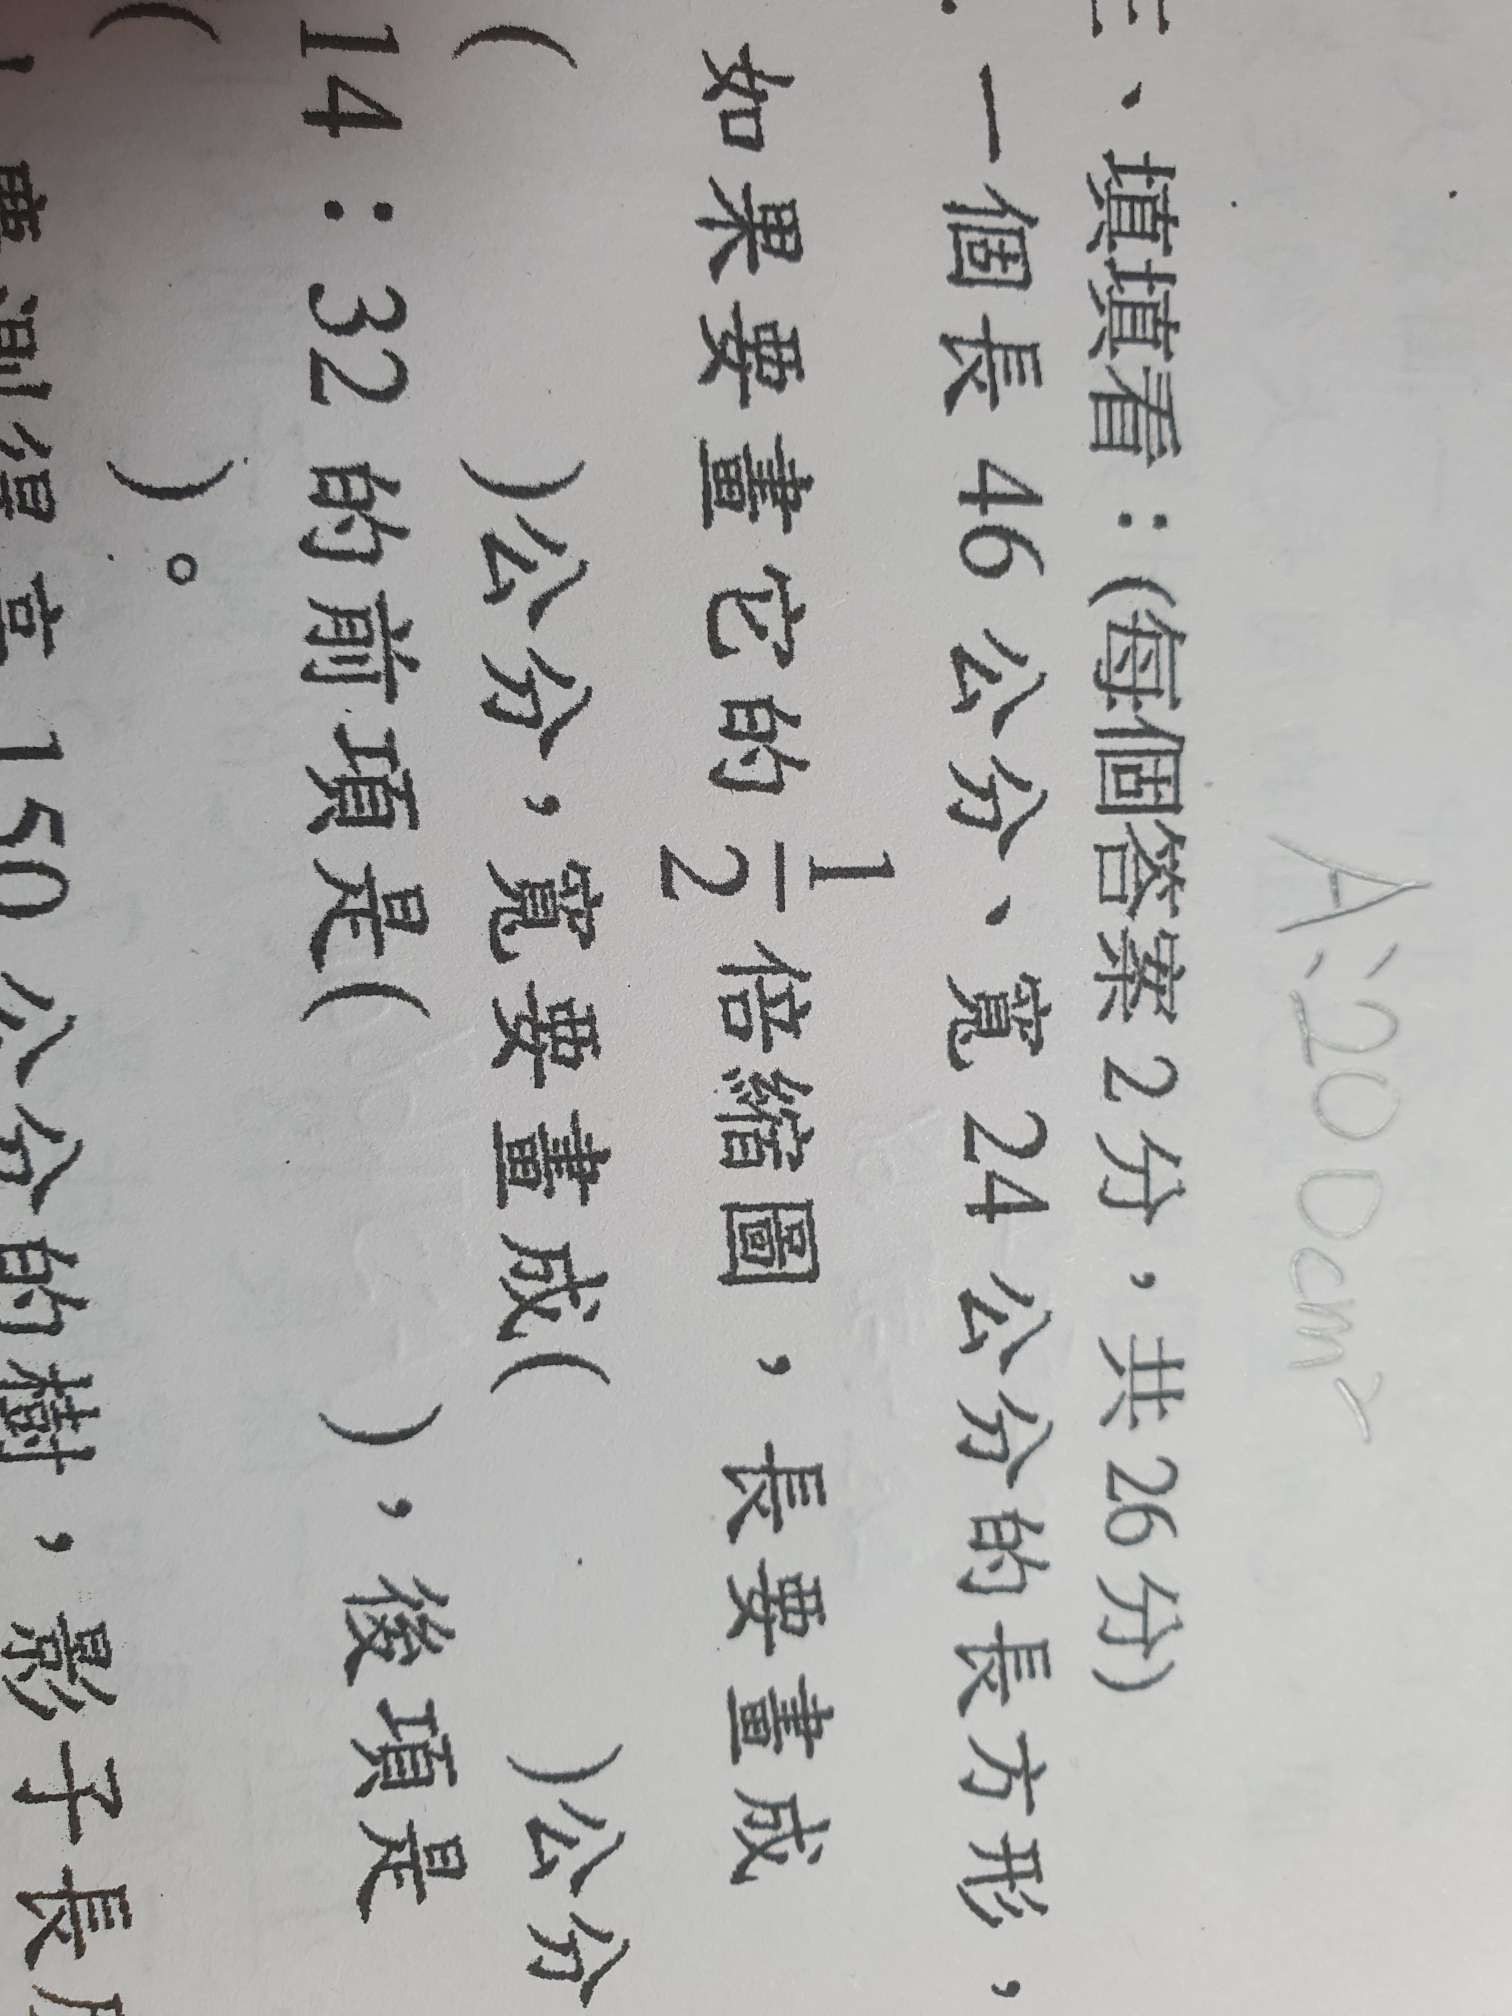 A:200cm²
三、填填看:(每個答案2分,共26分)
.一個長46公分、寬24公分的長方形,
如果要畫它的1/2倍縮圖,長要畫成
( )公分,寬要畫成( )公分
14:32的前項是( ),後項是
( )。
測得高150公分的樹,影子長